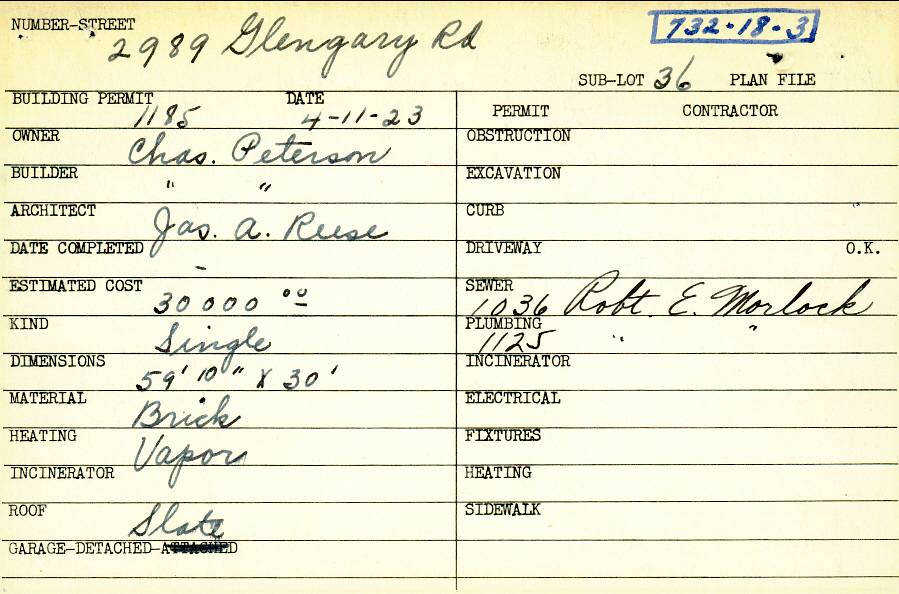 NUMBER-STREET
2989 Glengary Rd
732-18-3
SUB-LOT 36 PLAN FILE
BUILDING PERMIT DATE
1185 4-11-23
OWNER
Chas. Peterson
BUILDER
" "
ARCHITECT
Jas. A. Reese
DATE COMPLETED
-
ESTIMATED COST
30000 00
KIND
Single
DIMENSIONS
59' 10" X 30'
MATERIAL
Brick
HEATING
Vapor
INCINERATOR
ROOF
Slate
GARAGE-DETACHED-ATTACHED
PERMIT CONTRACTOR
OBSTRUCTION
EXCAVATION
CURB
DRIVEWAY O.K.
SEWER
1036 Robt. E. Morlock
PLUMBING
1125 " "
INCINERATOR
ELECTRICAL
FIXTURES
HEATING
SIDEWALK